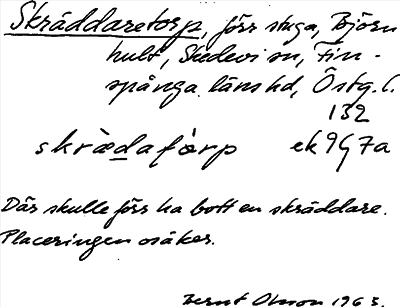 Skräddaretorp, förr stuga, Björn
hult, Skedevi sn, Fin-
spånga länshd, Östg. l.
132
skrädafårp ek 9G7a
Där skulle förr ha bott en skräddare.
Placeringen osäker.
Bernt Olsson 1963.